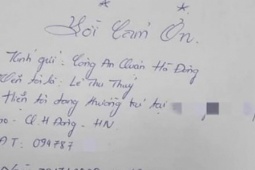 Lời Cảm Ơn.
Kính gửi: Công An Quận Hà Đông
Tên tôi là: Lê Thu Thuỷ
Hiện tôi đang thường trú tại
- Q.H Đông - HN
ĐT: 094787